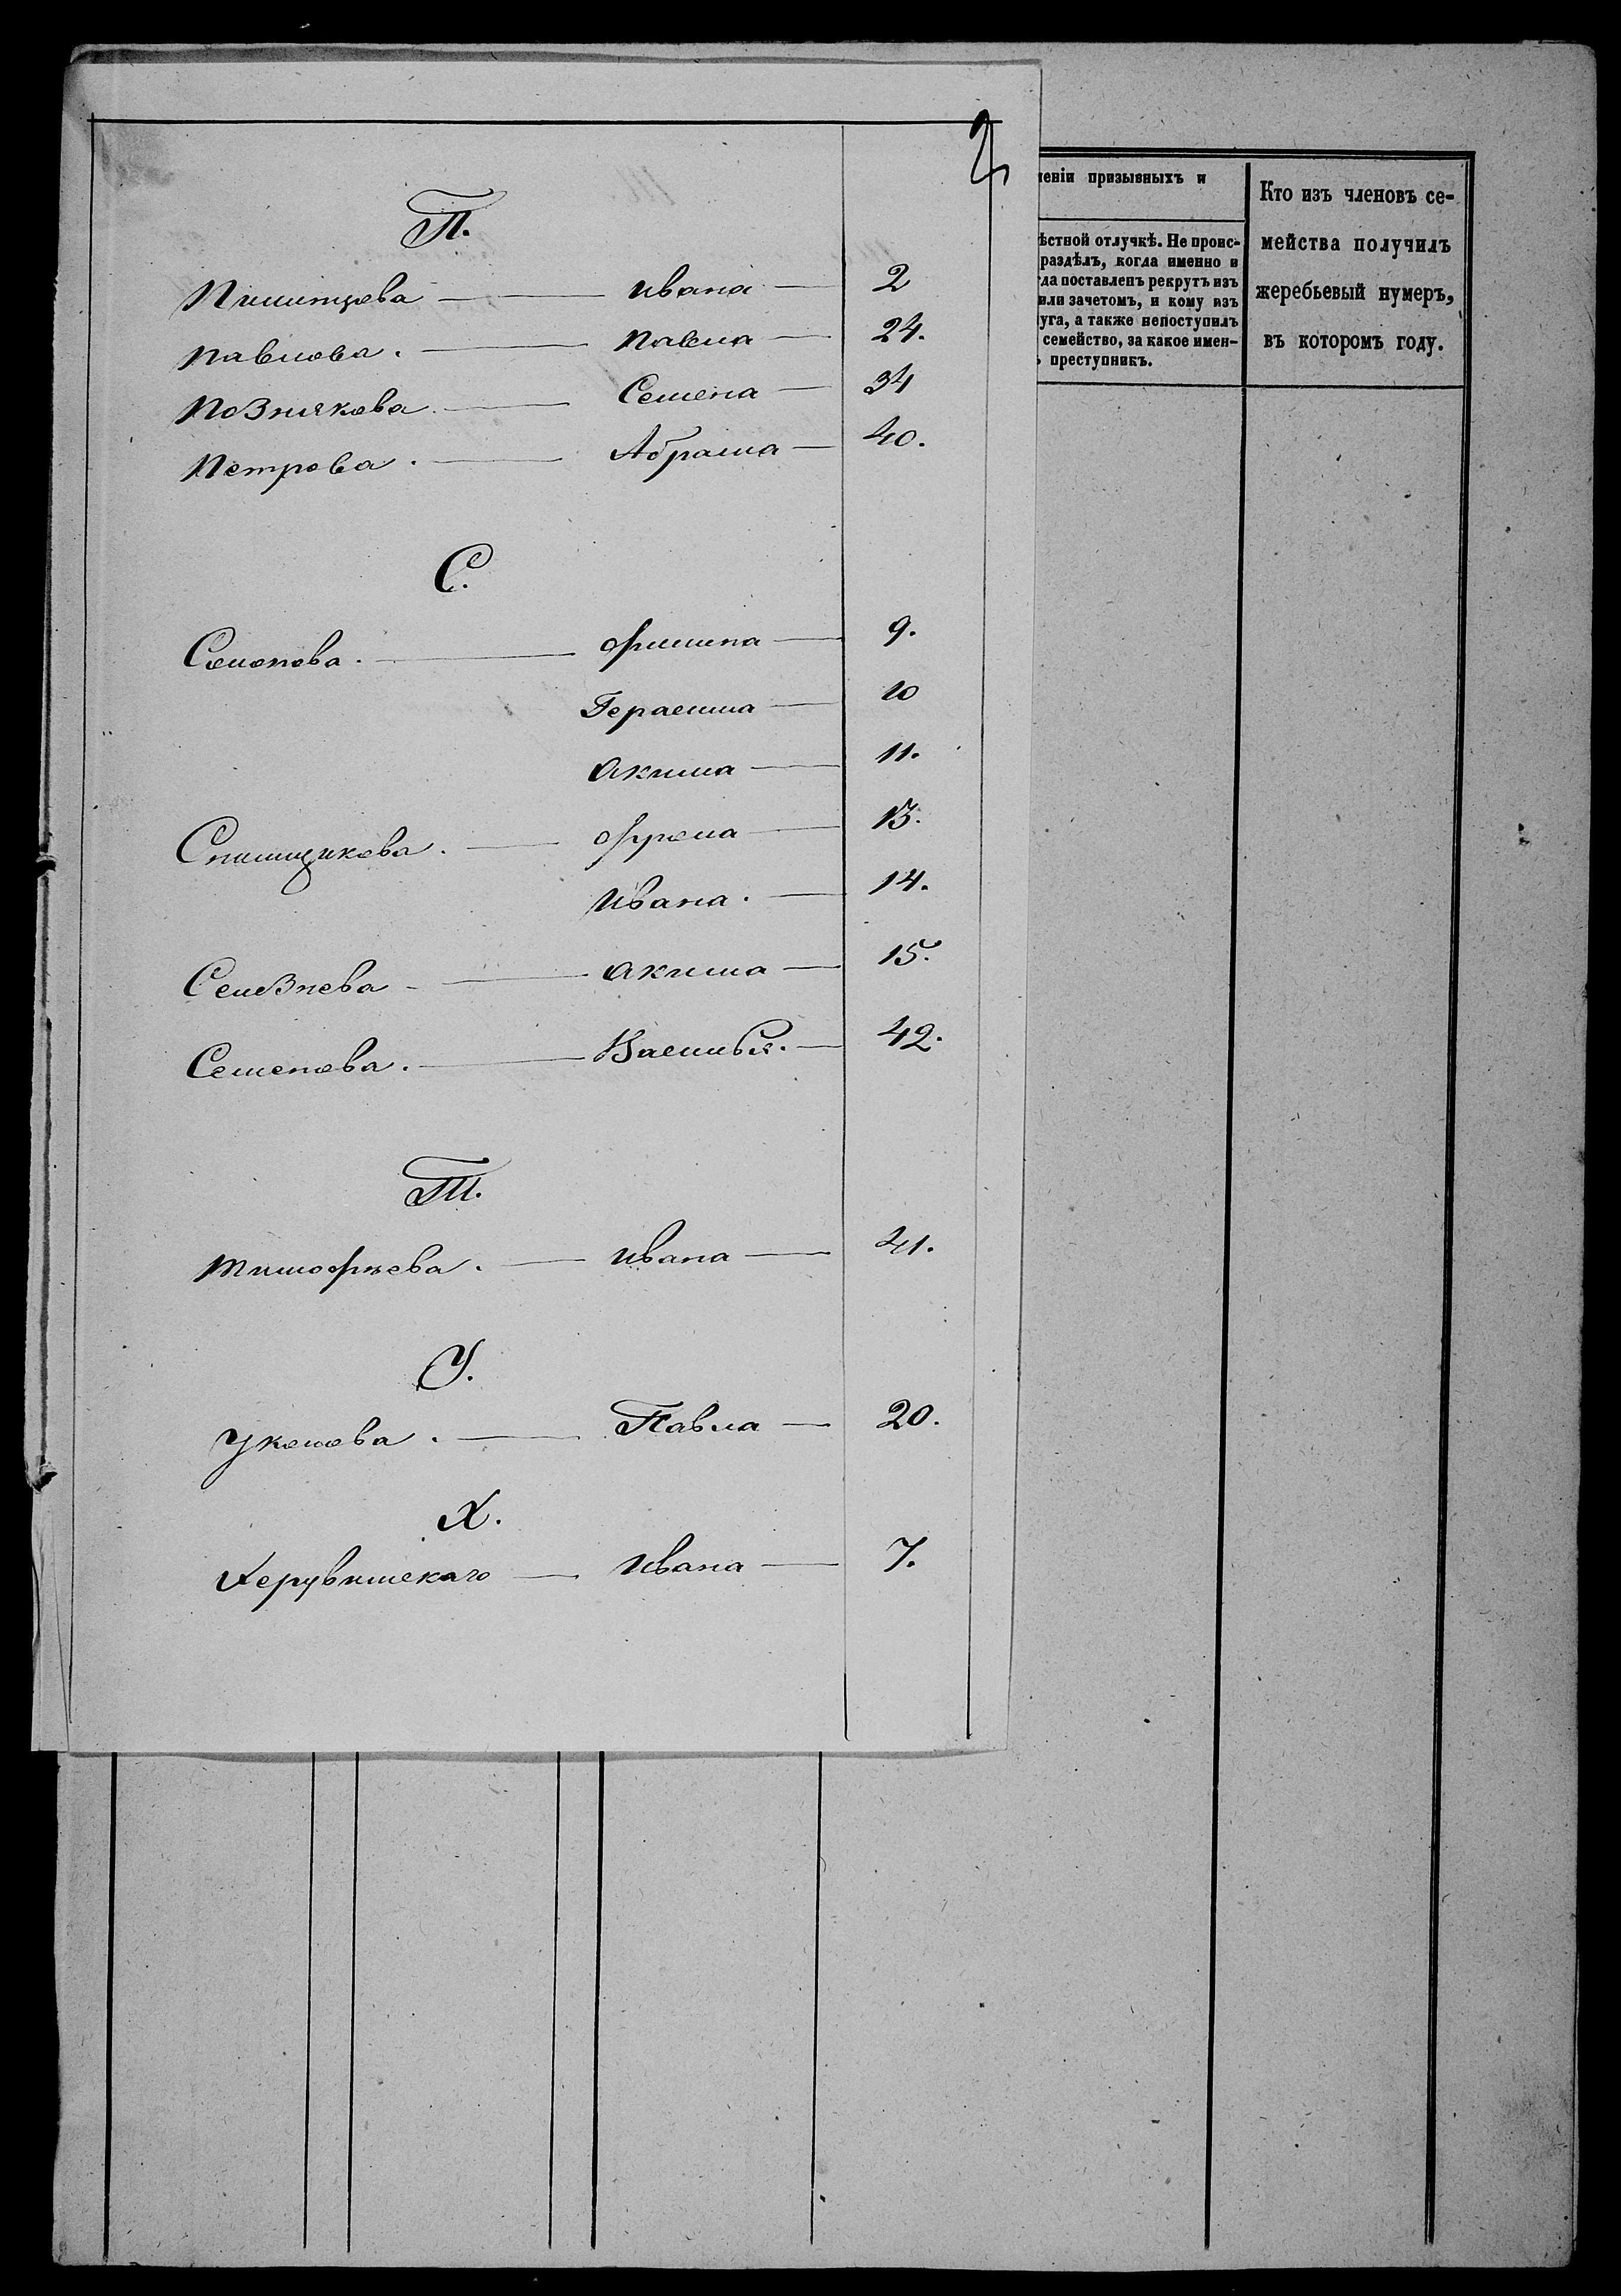 2
П.
Пшитцова — Ивана — 2
Павлова. — Павла — 24.
Позникова — Семена — 34
Петрова. — Абрама — 40.
С.
Семенова. — Филипа — 9.
Герасима — 10
Акима — 11.
Спищикова. — Фрола — 13.
Ивана. — 14.
Селезнева — Акима — 15.
Семенова. — Василья. — 42.
Т.
Тимофеева. — Ивана — 41.
У.
Уколова. — Павла — 20.
Х.
Херувимскаго — Ивана — 7.
неніи призывныхъ и
ѣстной отлучкѣ. Не проис-
раздѣлъ, когда именно и
да поставленъ рекрутъ изъ
или зачетомъ, и кому изъ
уга, а также непоступилъ
семейство, за какое имен-
преступникъ.
Кто изъ членовъ се-
мейства получилъ
жеребьевый нумеръ,
въ которомъ году.